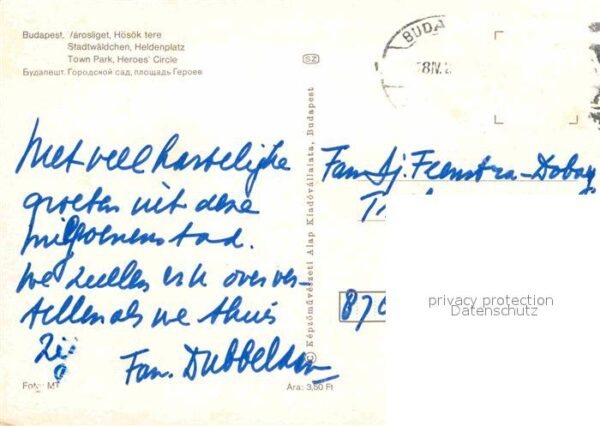 Budapest, Városliget, Hösök tere
Stadtwäldchen, Heldenplatz
Town Park, Heroes' Circle
Будапешт. Городской сад, площадь Героев
Met veel hartelijke
groeten uit deze
miljoenenstad.
We zullen er u over ver-
tellen als we thuis
zijn
Fam. Dubbeldam
Foto: MT
Ára: 3,50 Ft
SZ
© Képzőművészeti Alap Kiadóvállalata, Budapest
BUDA
Fam. Sj. Feenstra-Dobay
870
privacy protection
Datenschutz